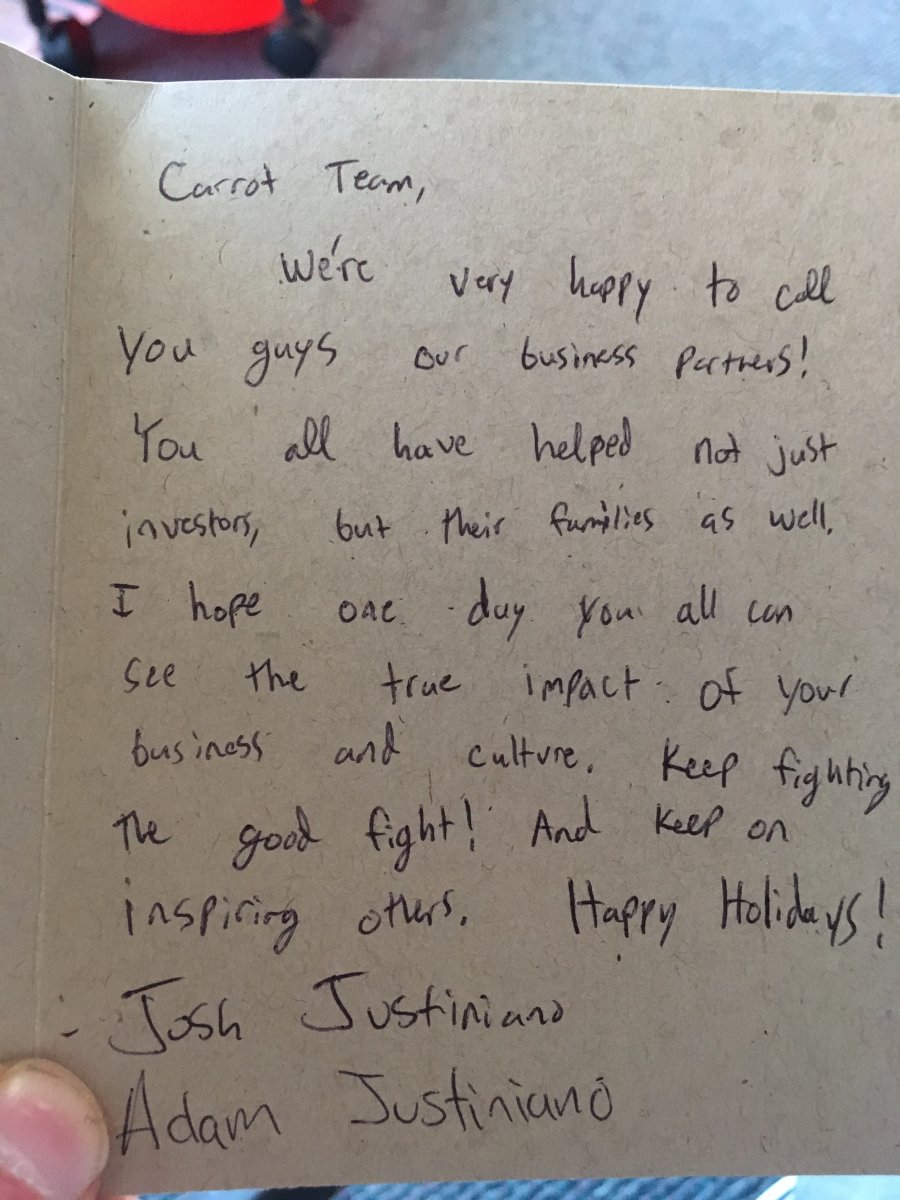 Carrot Team,
We're very happy to call
you guys our business partners!
You all have helped not just
investors, but their families as well.
I hope one day you all can
see the true impact of your
business and culture. Keep fighting
the good fight! And keep on
inspiring others. Happy Holidays!
- Josh Justiniano
Adam Justiniano